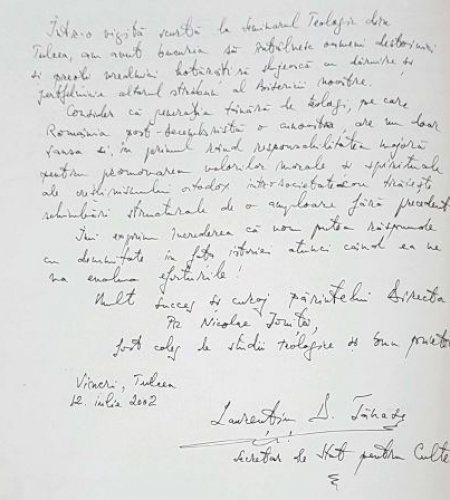 Într-o vizită scurtă la Seminarul Teologic din
Tulcea, am avut bucuria să întâlnesc oameni destoinici
și preoți vrednici hotărâți să slujească cu dăruire și
altarul străbun al Bisericii noastre.
Consider că generația tânără de teologi, pe care
România post-decembristă o cunoaște, are nu doar
șansa ci, în primul rând responsabilitatea majoră
pentru promovarea valorilor morale și spirituale
ale creștinismului ortodox într-o societate ce trăiește
schimbări structurale de o amploare fără precedent
Îmi exprim încrederea că vom putea răspunde
cu demnitate în fața istoriei atunci când ea ne
va evalua eforturile!
Mult succes și curaj părintelui Director
Pr. Nicolae Ioniță,
fost coleg de studii teologice și bun prieten
Vineri, Tulcea
12. iulie 2002
Laurențiu D. Tănase
Secretar de Stat pentru Culte